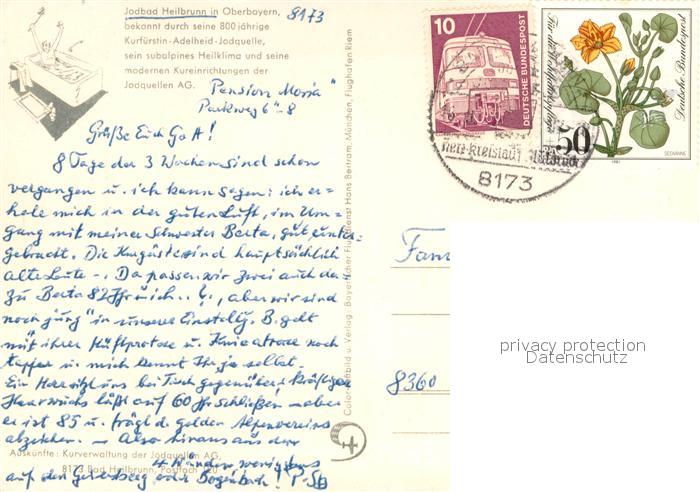 Jodbad Heilbrunn in Oberbayern,
bekannt durch seine 800jährige
Kurfürstin-Adelheid-Jodquelle,
sein subalpines Heilklima und seine
modernen Kureinrichtungen der
Jodquellen AG.
8173
"Pension Moria"
Parkweg 6-8
Grüße Euch Gott!
8 Tage der 3 Wochen sind schon
vergangen u. ich kann sagen: ich er=
hole mich in der guten Luft, im Um=
gang mit meiner Schwester Berta, gut
gebracht. Die Kurgäste sind hauptsächlich
alte Leute -. Da passen wir zwei auch da
zu Berta 82 Jhr ich .. ?, aber wir sind
noch jung" in unserer Einstellg. B. geht
mit ihrer Hüftprotese u. Knie noch
tapfer u. mich kennt Ihr ja selbst.
Ein Herr sitzt uns bei Tisch gegenüber: kräftiger
Haarwuchs läßt auf 60 Jhr schließen - aber
er ist 85 u. trägt d. golden Alpenvereins
abzeichen. - Also hinaus aus den
4 Wänden wenigstens
auf den oder Bogenbach!
Auskünfte: Kurverwaltung der Jodquellen AG,
8173 Bad Heilbrunn, Postfach 120
Color-Luftbild u. Verlag: Bayerischer Flugdienst Hans Bertram, München, Flughafen Riem
10
DEUTSCHE BUNDESPOST
Deutsche Bundespost
50
SEEKANNE
1981
8173
Fam
8360
privacy protection
Datenschutz